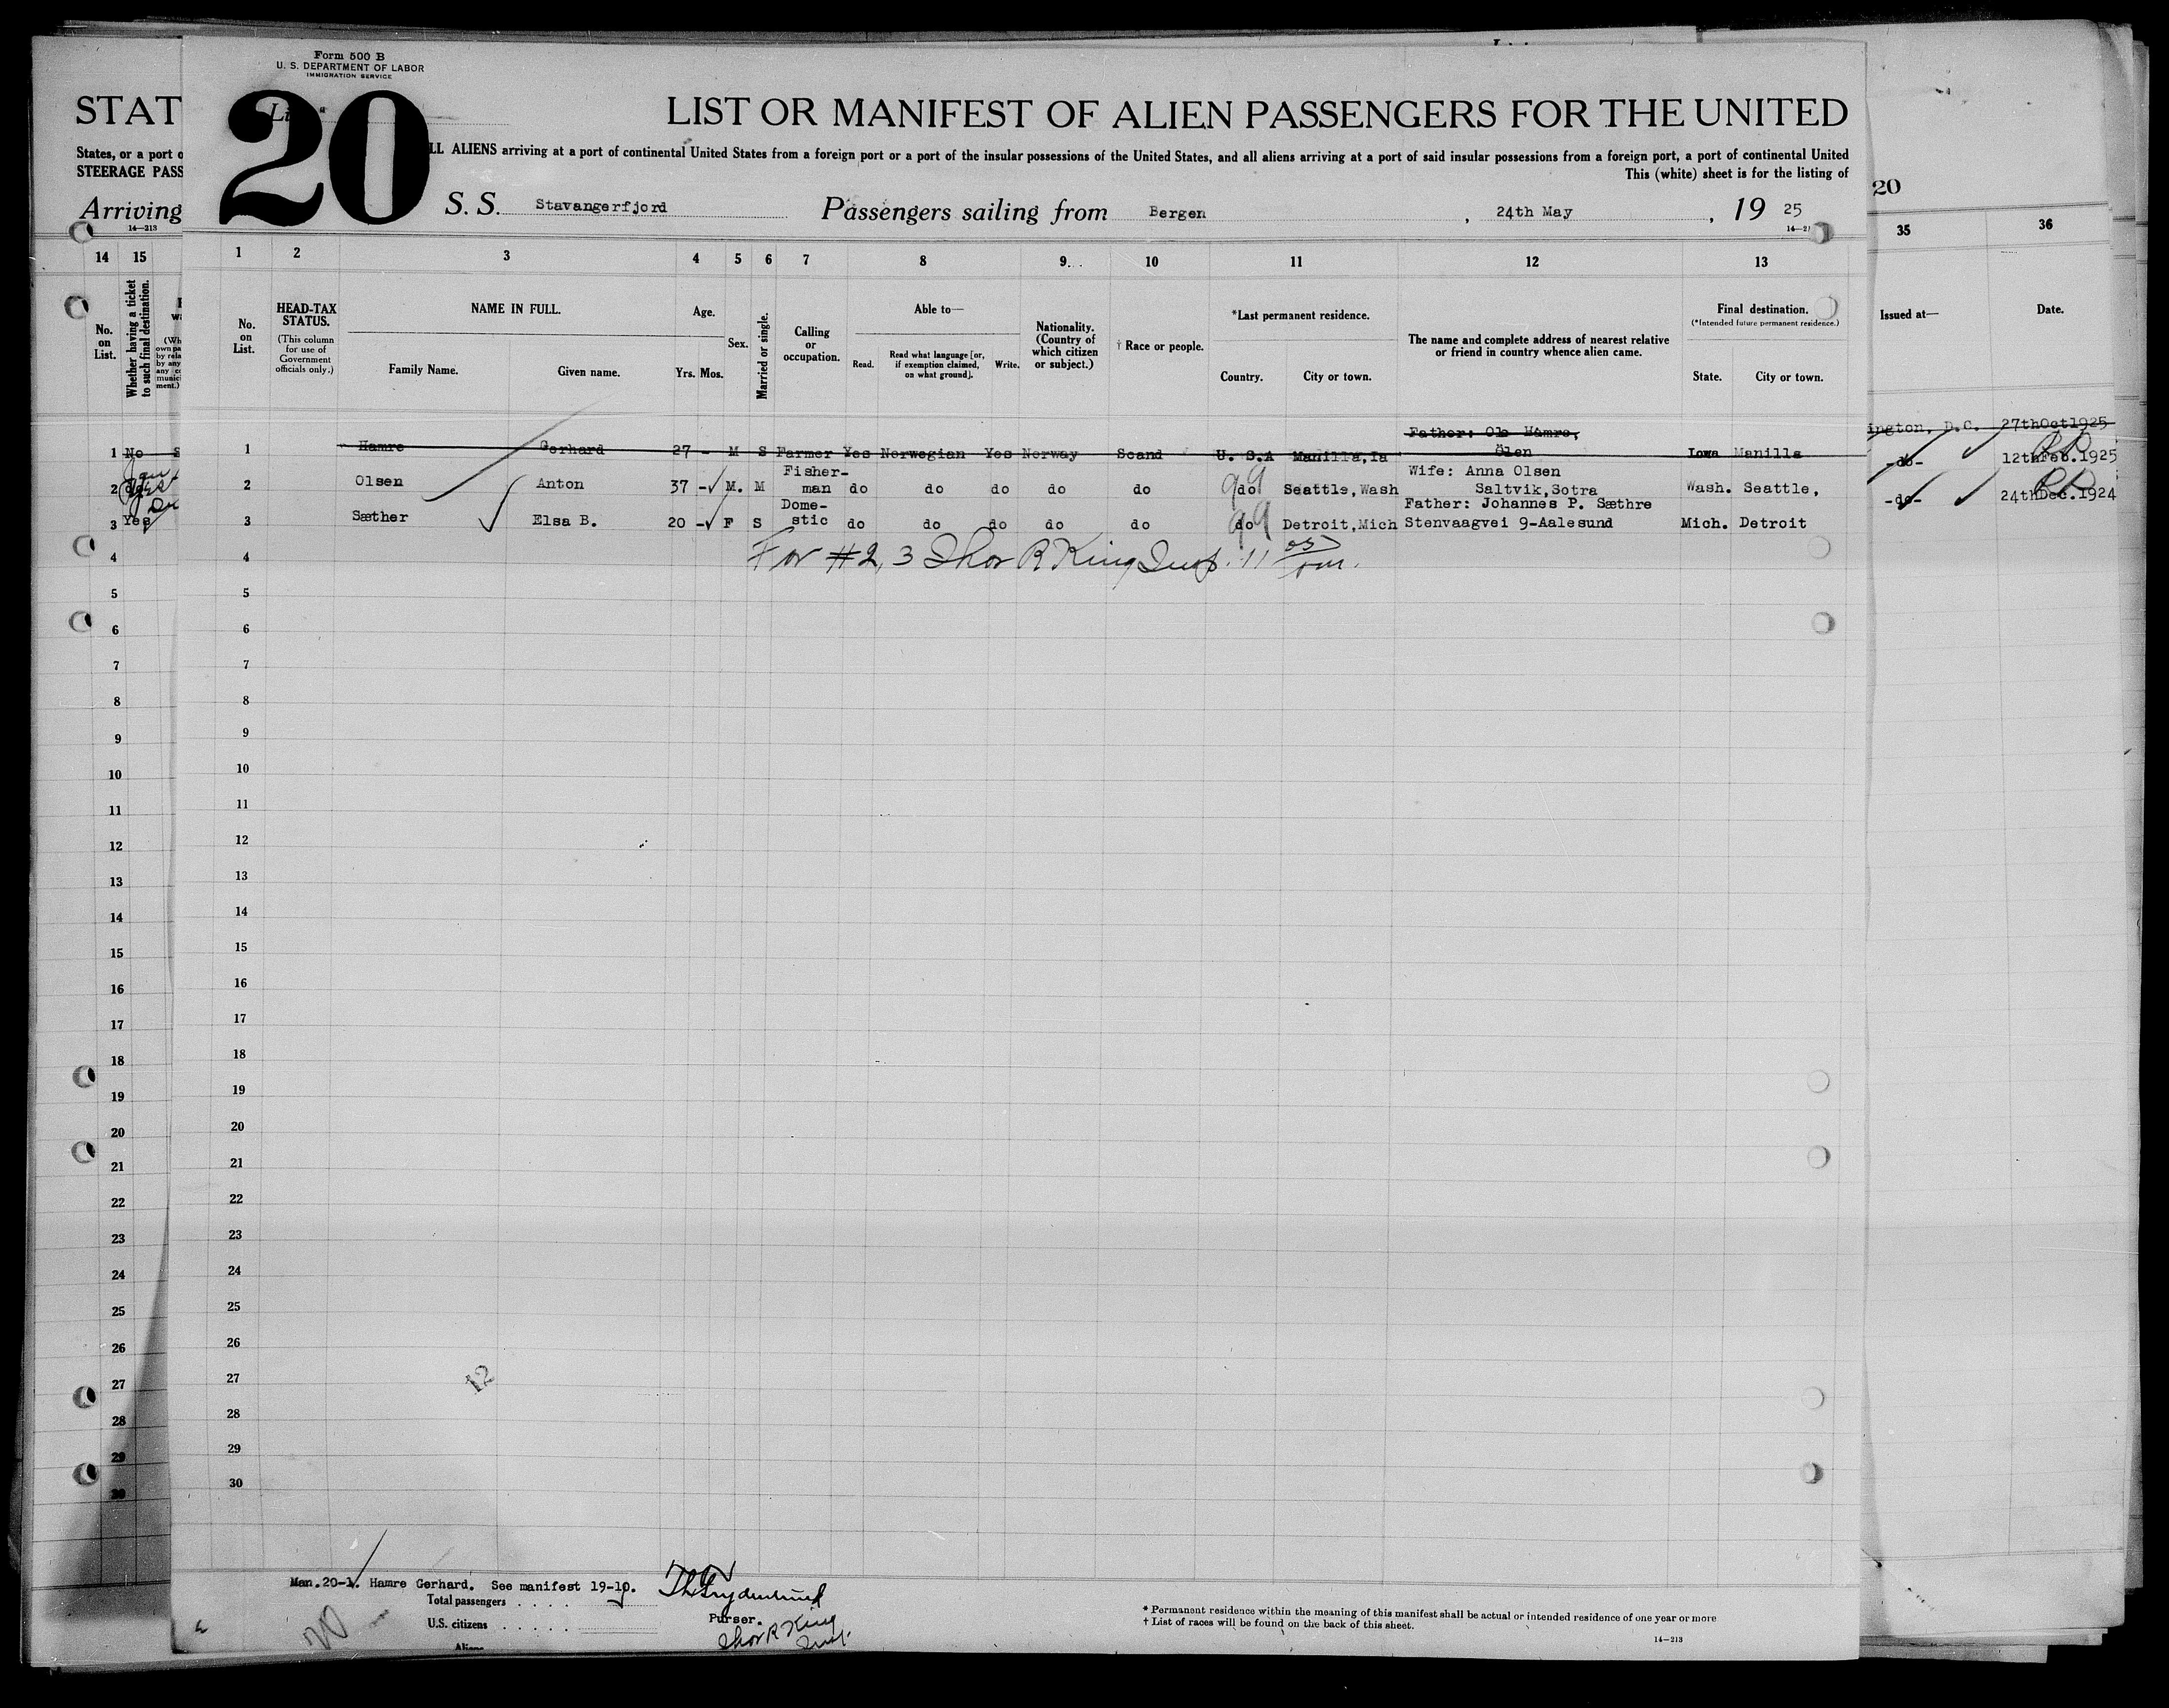 Form 500 B
U. S. DEPARTMENT OF LABOR
IMMIGRATION SERVICE
20
LIST OR MANIFEST OF ALIEN PASSENGERS FOR THE UNITED
LL ALIENS arriving at a port of continental United States from a foreign port or a port of the insular possessions of the United States, and all aliens arriving at a port of said insular possessions from a foreign port, a port of continental United
This (white) sheet is for the listing of
S. S. Stavangerfjord Passengers sailing from Bergen , 24th May , 19 25
STAT
States, or a port o
STEERAGE PASS
Arriving
14—213
20
1 2 3 4 5 6 7 8 9 10 11 12 13
14 15
35 36
No. on List.
HEAD-TAX STATUS.
(This column for use of Government officials only.)
NAME IN FULL.
Family Name. Given name.
Age.
Yrs. Mos.
Sex.
Married or single.
Calling or occupation.
Able to—
Read. Read what language [or, if exemption claimed, on what ground]. Write.
Nationality. (Country of which citizen or subject.)
† Race or people.
*Last permanent residence.
Country. City or town.
The name and complete address of nearest relative or friend in country whence alien came.
Final destination.
(*Intended future permanent residence.)
State. City or town.
No. on List.
Whether having a ticket to such final destination.
Issued at—
Date.
1 Hamre Gerhard 27 - M S Farmer Yes Norwegian Yes Norway Scand U. S.A Manilla,Ia Father: Ole Hamre, Ölen Iowa Manilla
2 Olsen Anton 37 - M. M Fisher-man do do do do do do Seattle,Wash Wife: Anna Olsen Saltvik,Sotra Wash. Seattle,
3 Sæther Elsa B. 20 - F S Dome-stic do do do do do do Detroit,Mich Father: Johannes P. Sæthre Stenvaagvei 9-Aalesund Mich. Detroit
1 No
3 Yes
ington, D.C. 27thOct1925
-do- 12thFeb.1925
-do- 24thDec.1924
For #2, 3 Thor R King Insp.
4
5
6
7
8
9
10
11
12
13
14
15
16
17
18
19
20
21
22
23
24
25
26
27
28
29
30
12
Man.20-1. Hamre Gerhard. See manifest 19-10.
Total passengers
U.S. citizens
Aliens
Purser.
Thor R King
Insp.
20
* Permanent residence within the meaning of this manifest shall be actual or intended residence of one year or more
† List of races will be found on the back of this sheet.
14—213